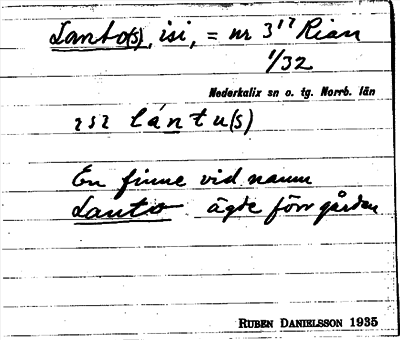 Lanto(s), isi, = nr 3¹⁷ Rian
1/32
Nederkalix sn o. tg. Norrb. län
lántu(s)
En finne vid namn
Lanto ägde förr gården
RUBEN DANIELSSON 1935